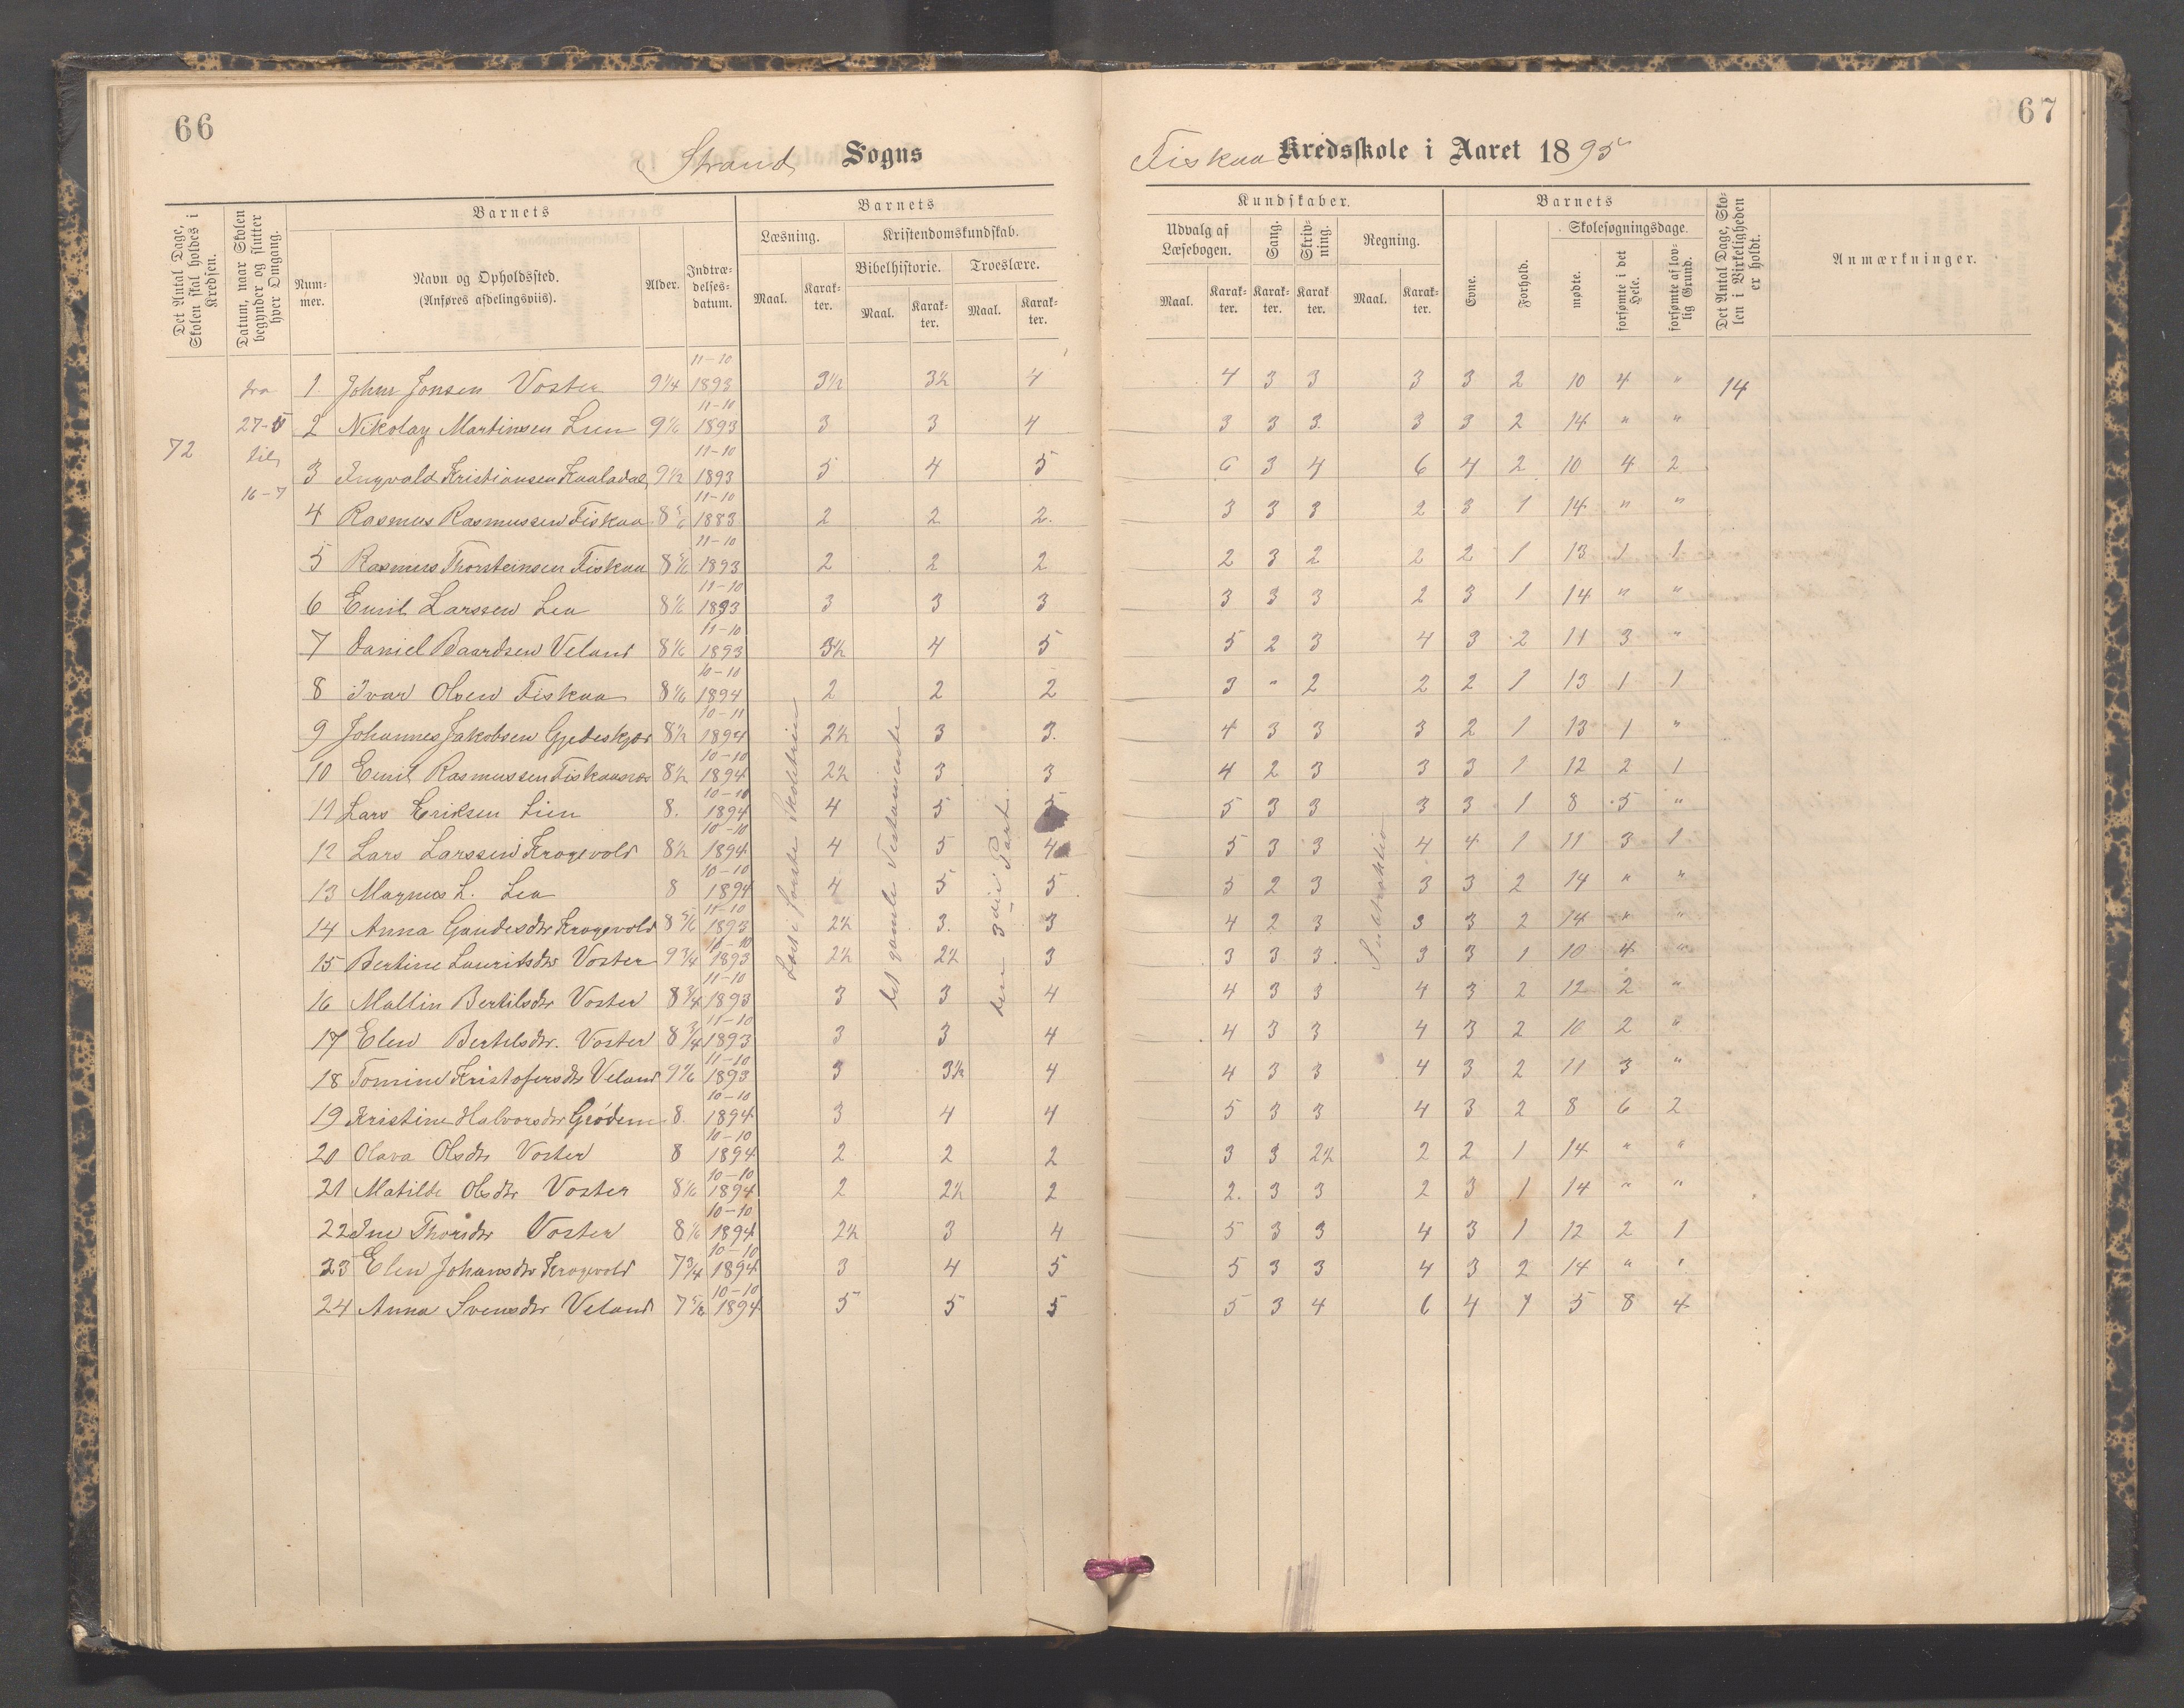 66
Strand Sogns
Det Antal Dage, Skolen skal holdes i Kredsen.
Datum, naar Skolen begynder og slutter hver Omgang.
Barnets
Num-mer.
Navn og Opholdssted.
(Anføres afdelingsviis).
Alder.
Indtræ-delses-datum.
Barnets
Læsning.
Kristendomskundskab.
Bibelhistorie.
Troeslære.
Maal.
Karak-ter.
Maal.
Karak-ter.
Maal.
Karak-ter.
67
Fiskaa Kredsskole i Aaret 1895
Kundskaber.
Udvalg af Læsebogen.
Sang.
Skriv-ning.
Regning.
Maal.
Karak-ter.
Karak-ter.
Karak ter.
Maal.
Karak-ter.
Barnets
Evne.
Forhold.
Skolesøgningsdage.
mødte.
forsømte i det Hele.
forsømte af lov-lig Grund.
Det Antal Dage, Sko-len i Virkeligheden er holdt.
Anmærkninger.
72
fra
27-
til
16-7
det gamle Testamente
den 3die Part
Subtraktion
1. Johan Jonsen Voster 9 1/4 11-10 1893 3½ 3½ 4 4 3 3 3 3 2 10 4 " 14
2 Nikolay Martinsen Lien 9 1/6 11-10 1893 3 3 4 3 3 3. 3 3 2 14 " "
3 Ingvald Kristiansen 9 1/2 11-10 1893 5 4 5 6 3 4 6 4 2 10 4 2
4 Rasmus Rasmussen Fiskaa 8 5/6 11-10 1883 2 2 2. 3 3 3 2 3 1 14 " "
5 Rasmus Thorsteinsen Fiskaa 8 11-10 1893 2 2 2 2 3 2 2 2 1 13 1 1
6 Emil Larssen Lea 8 1/6 11-10 1893 3 3 3 3 3 3 2 3 1 14 " "
7 Daniel Baardsen Veland 8 1/6 11-10 1893 3½ 4 5 5 2 3 4 3 2 11 3 "
8 Ivar Olsen Fiskaa 8 1/6 10-10 1894 2 2 2 3 " 2 2 2 1 13 1 1
9 Johannes Jakobsen 8 1/2 10-11 1894 2½ 3 3. 4 3 3 3 2 1 13 1 "
10 Emil Rasmussen Fiskaanæs 8 1/2 10-10 1894 2½ 3 3 4 2 3 3 3 1 12 2 1
11 Lars Eriksen Lien 8. 10-10 1894 4 5 5 5 3 3 3 3 1 8 5 "
12 Lars Larssen Krogevold 8 1/2 10-10 1894 4 5 4 5 3 3 4 4 1 11 3 1
13 Magnus L. Lea 8 10-10 1894 4 5 5 5 2 3 3 3 2 14 " "
14 Anna Gaudesdtr Krogevold 8 5/6 11-10 1893 2½ 3. 3 4 2 3 3 3 2 14 " "
15 Bertine Lauritsdtr Voster 9 3/4 10-10 1893 2½ 2½ 3 3 3 3. 3 3 1 10 4 "
16 Mallin Bertilsdtr Voster 8 3/4 11-10 1893 3 3 4 4 3 3 4 3 2 12 2 "
17 Elen Bertelsdtr. Voster 8 3/4 11-10 1893 3 3 4 4 3 3 4 3 2 10 2 "
18 Tomine Kristofersdtr Veland 9 1/6 11-10 1893 3 3½ 4 4 3 3 4 3 2 11 3 "
19 Kristine Halvorsdtr Grödem 8 10-10 1894 3 4 4 5 3 3 4 3 2 8 6 2
20 Olava Olsdtr Voster 8 10-10 1894 2 2 2 3 3 2½ 2 2 1 14 " "
21 Matilde Olsdtr Voster 8 1/6 10-10 1894 2 2½ 2 2. 3 3 2 3 1 14 " "
22 Ine Thorsdtr Voster 8 1/6 10-10 1894 2½ 3 4 5 3 3 4 3 1 12 2 1
23 Elen Johansdtr Krogevold 7 3/4 10-10 1894 3 4 5 5 3 3 4 3 2 14 " "
24 Anna Svensdtr Veland 7 10-10 1894 5 5 5 5 3 4 6 4 1 5 8 4